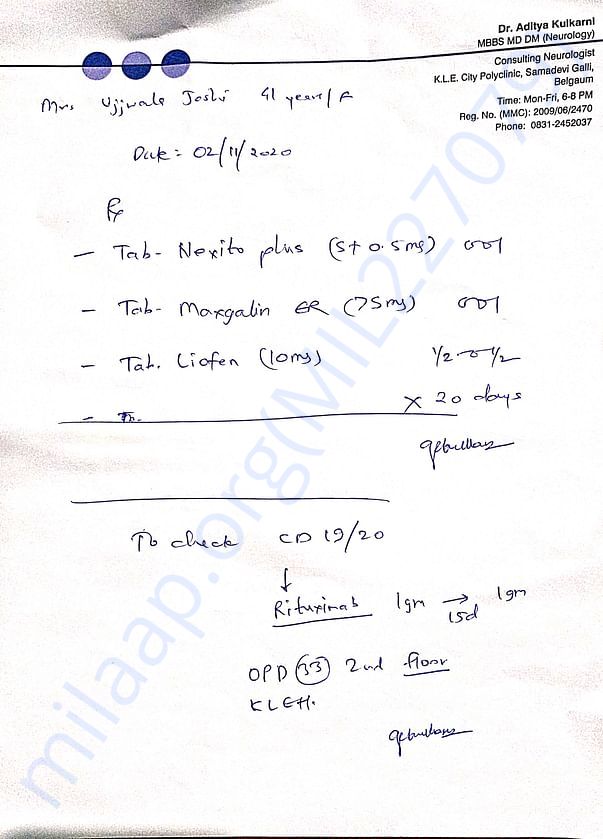 Dr. Aditya Kulkarni
MBBS MD DM (Neurology)
Consulting Neurologist
K.L.E. City Polyclinic, Samadevi Galli,
Belgaum
Time: Mon-Fri, 6-8 PM
Reg. No. (MMC): 2009/06/2470
Phone: 0831-2452037
Mrs Ujjwala Joshi 41 years/F
Date: 02/11/2020
Rx
- Tab- Nexito plus (5+0.5mg) 001
- Tab- Maxgalin ER (75mg) 001
- Tab. Liofen (10mg) 1/2-0-1/2
X 20 days
To check CD 19/20
↓
Rituximab 1gm → 1gm
15d
OPD 33 2nd floor
KLEH.
milaap.org(MIL227079